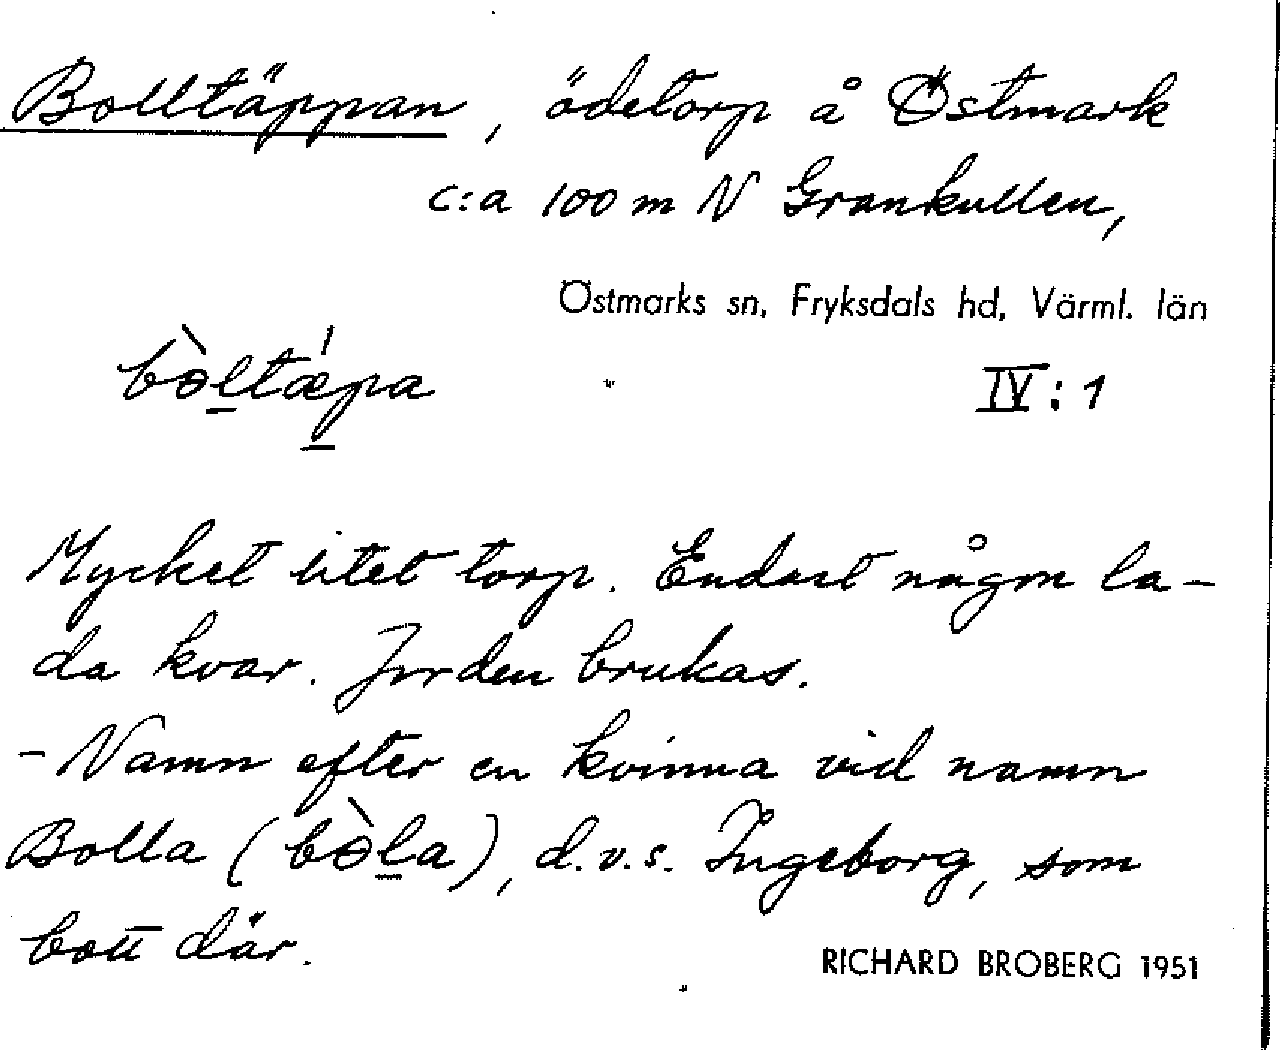 Bolltäppan, ödetorp å Östmark
c:a 100 m N Grankullen,
Östmarks sn, Fryksdals hd, Värml. län
bòltæ̍pa
IV: 1
Mycket litet torp. Endast någon la-
da kvar. Jorden brukas.
- Namn efter en kvinna vid namn
Bolla (bòla), d.v.s. Ingeborg, som
bott där.
RICHARD BROBERG 1951